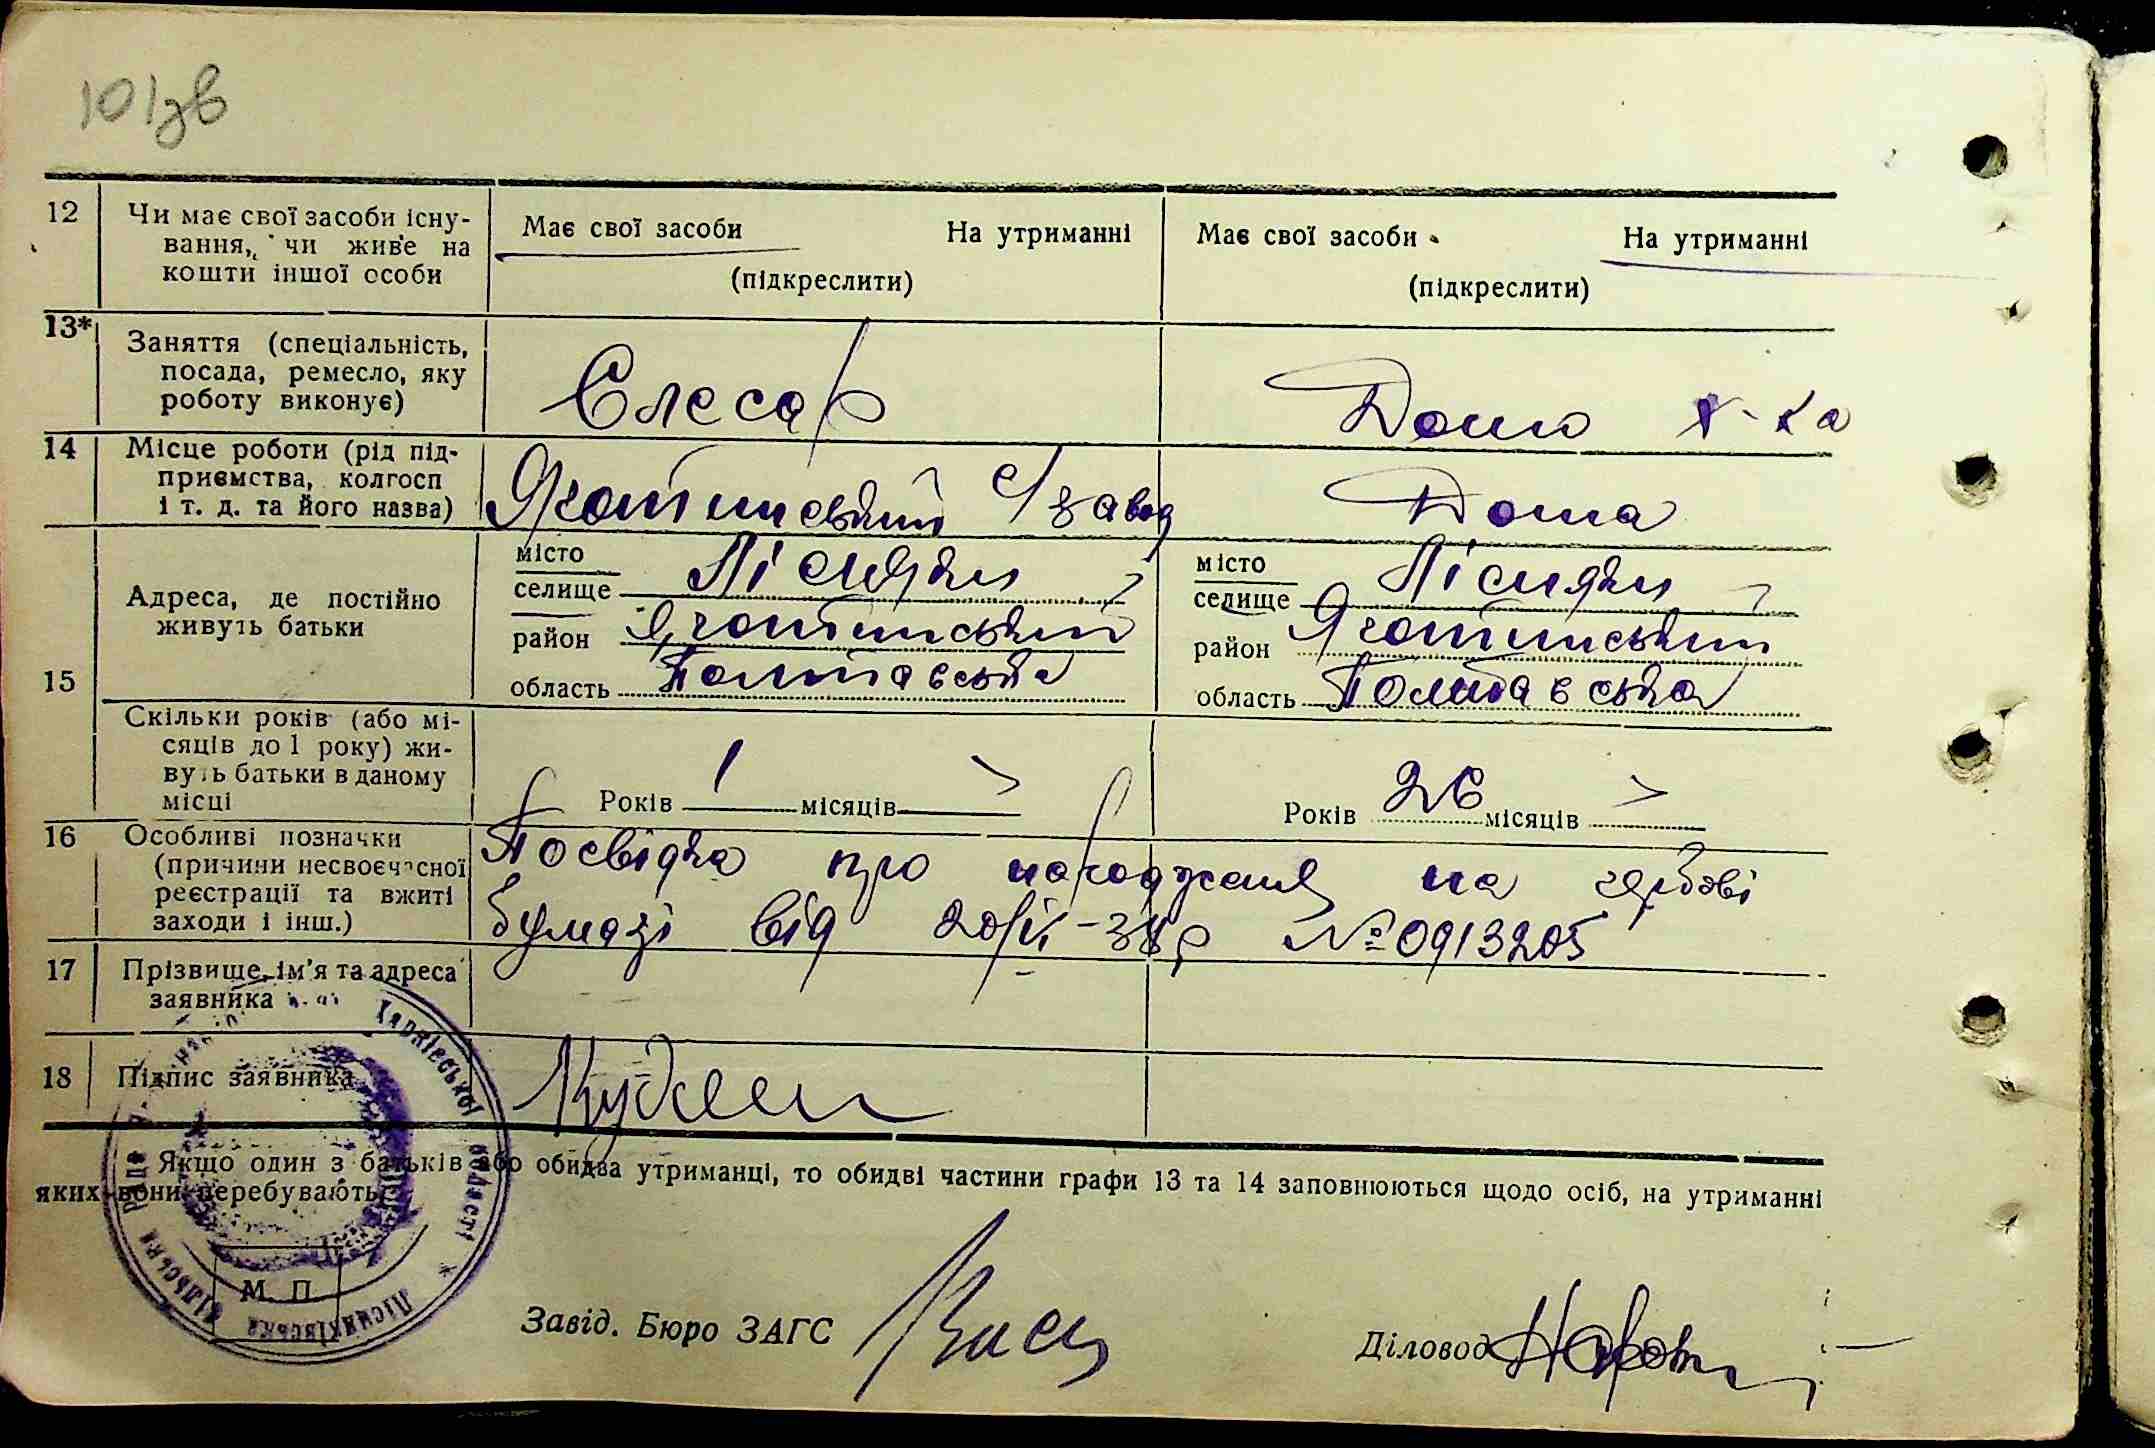 101зв
12 Чи має свої засоби існу-
вання, чи живе на
кошти іншої особи
Має свої засоби На утриманні
(підкреслити)
Має свої засоби На утриманні
(підкреслити)
13* Заняття (спеціальність,
посада, ремесло, яку
роботу виконує)
Слесар
Домо х-ка
14 Місце роботи (рід під-
приємства, колгосп
і т. д. та його назва)
Яготинський с/завод
Дома
15 Адреса, де постійно
живуть батьки
місто
селище Лісняки
район Яготинський
область Полтавська
місто
селище Лісняки
район Яготинський
область Полтавська
Скільки років (або мі-
сяців до 1 року) жи-
вуть батьки в даному
місці
Років 1 місяців
Років 26 місяців
16 Особливі позначки
(причини несвоєчасної
реєстрації та вжиті
заходи і інш.)
Посвідка про народженя на гербові
бумазі від 20/ІІ-38р №0913205
17 Прізвище, ім'я та адреса
заявника
18 Підпис заявника
Якщо один з батьків або обидва утриманці, то обидві частини графи 13 та 14 заповнюються щодо осіб, на утриманні
яких вони перебувають.
Харківської області * Лісняківська сільська рада
М. П.
Завід. Бюро ЗАГС
Діловод